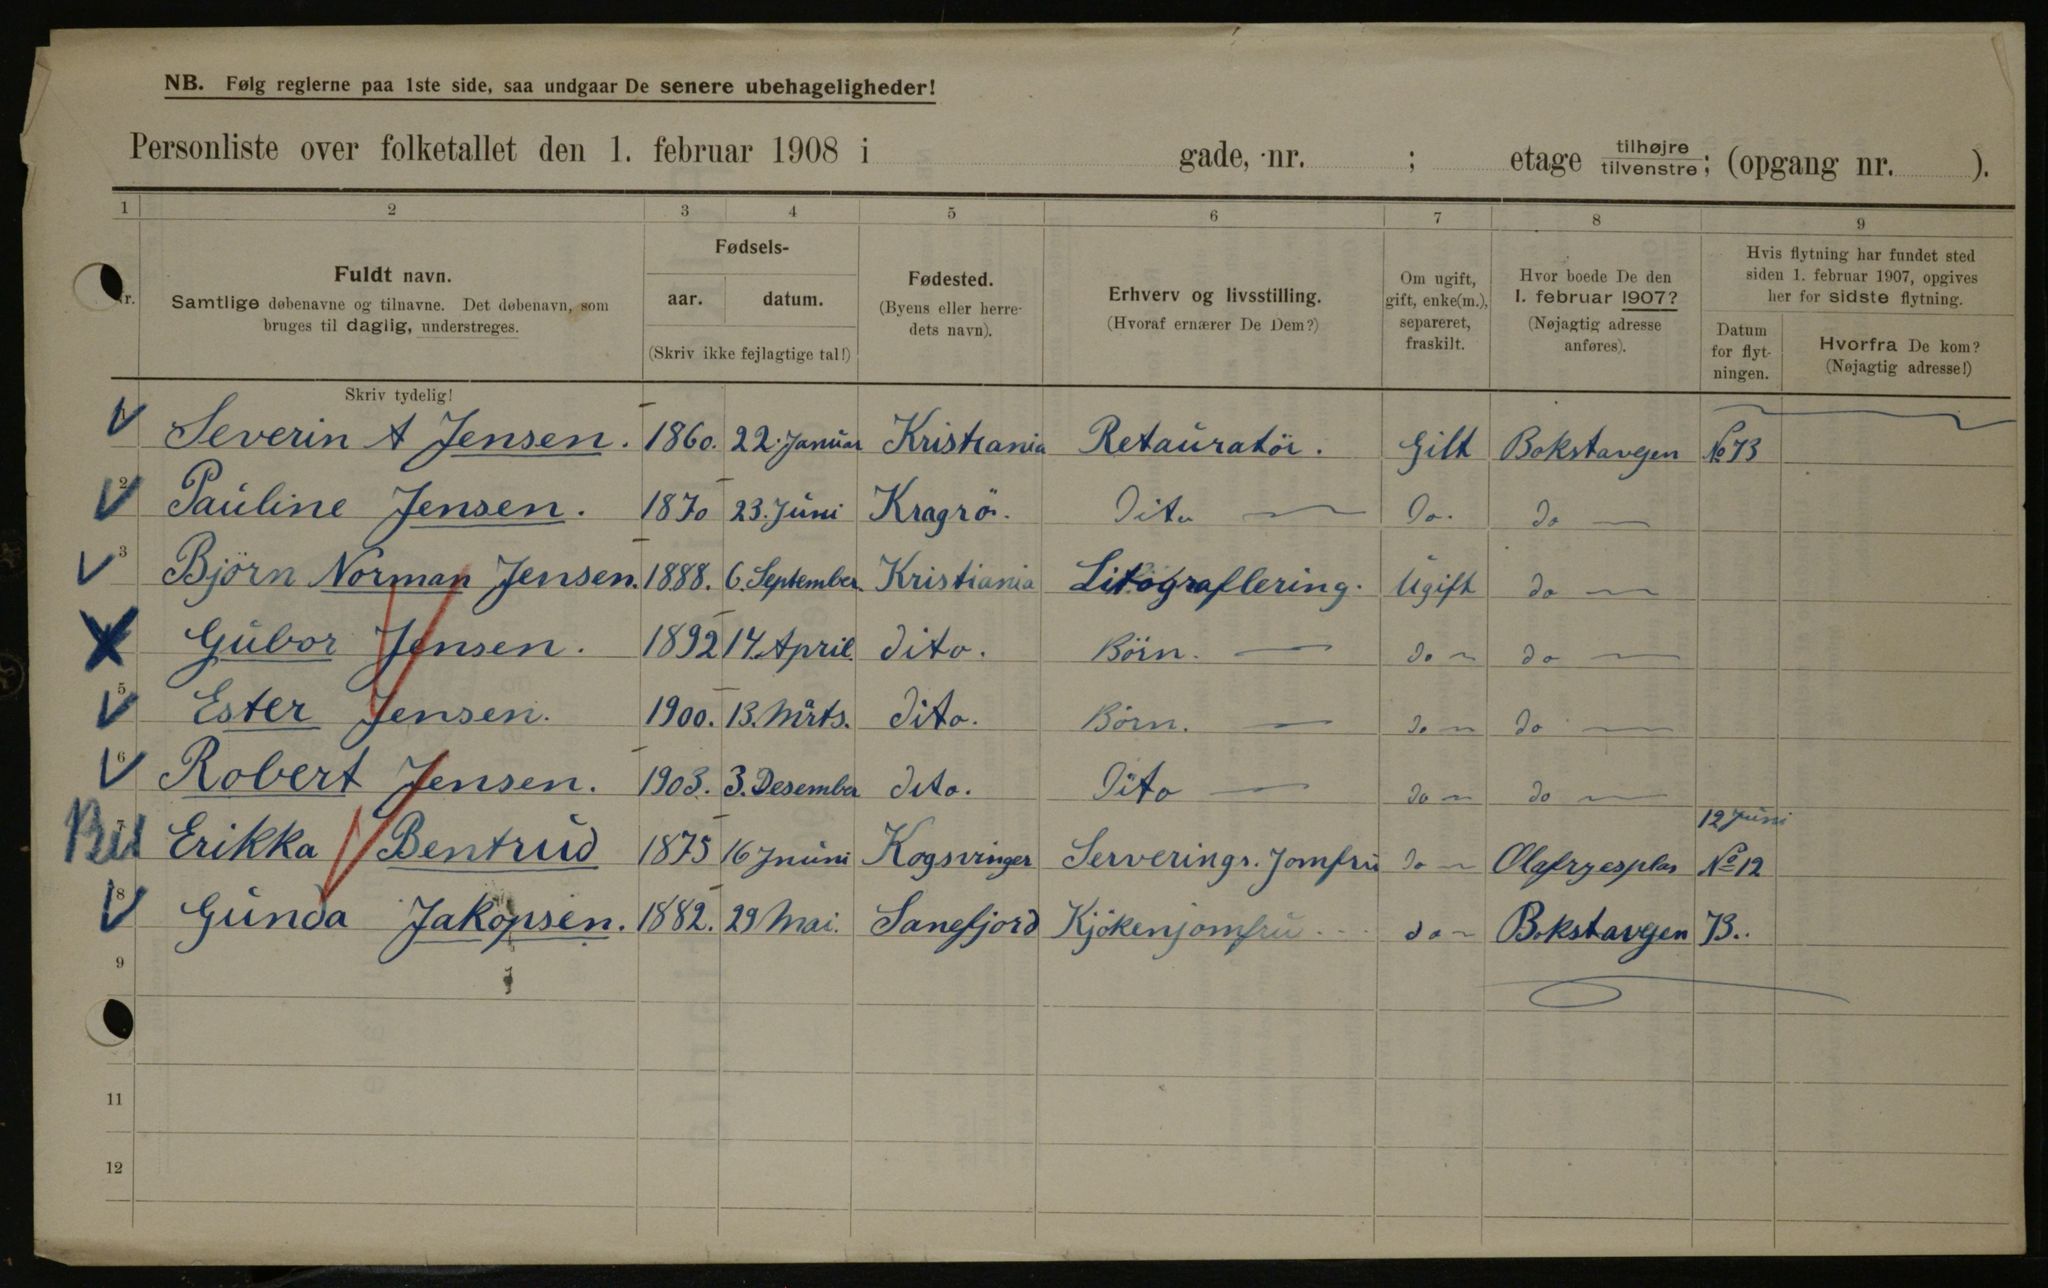 NB. Følg reglerne paa 1ste side, saa undgaar De senere ubehageligheder!
Personliste over folketallet den 1. februar 1908 i gade, nr. ; etage tilhøjre tilvenstre; (opgang nr. ).
1 2 3 4 5 6 7 8 9
Nr.
Fuldt navn.
Samtlige døbenavne og tilnavne. Det døbenavn, som
bruges til daglig, understreges.
Fødsels-
aar. datum.
(Skriv ikke fejlagtige tal!)
Fødested.
(Byens eller herre-
dets navn).
Erhverv og livsstilling.
(Hvoraf ernærer De Dem?)
Om ugift,
gift, enke(m.),
separeret,
fraskilt.
Hvor boede De den
1. februar 1907?
(Nøjagtig adresse
anføres).
Hvis flytning har fundet sted
siden 1. februar 1907, opgives
her for sidste flytning.
Datum
for flyt-
ningen.
Hvorfra De kom?
(Nøjagtig adresse!)
Skriv tydelig!
1 Severin A Jensen. 1860. 22. Januar Kristiania Retauratör. Gift Bokstavgen No 73
2 Pauline Jensen. 1870 23. Juni Kragrö. Dito Do. do
3 Björn Norman Jensen. 1888. 6. September. Kristiania Litograflering. Ugift do
Gubor Jensen. 1892 14. April. dito. Börn. do do
5 Ester Jensen. 1900. 13. Mårts. dito. Börn. do do
6 Robert Jensen. 1903. 3. Desember dito. Dito do do
12 Juni
7 Erikka Bentrud 1875 16 Jnuni Kogsvinger Serverings. Jomfru do Olafryesplas No 12
8 Gunda Jakopsen. 1882. 29 Mai. Sanefjord Kjökenjomfru do Bokstavgen 73..
9
11
12